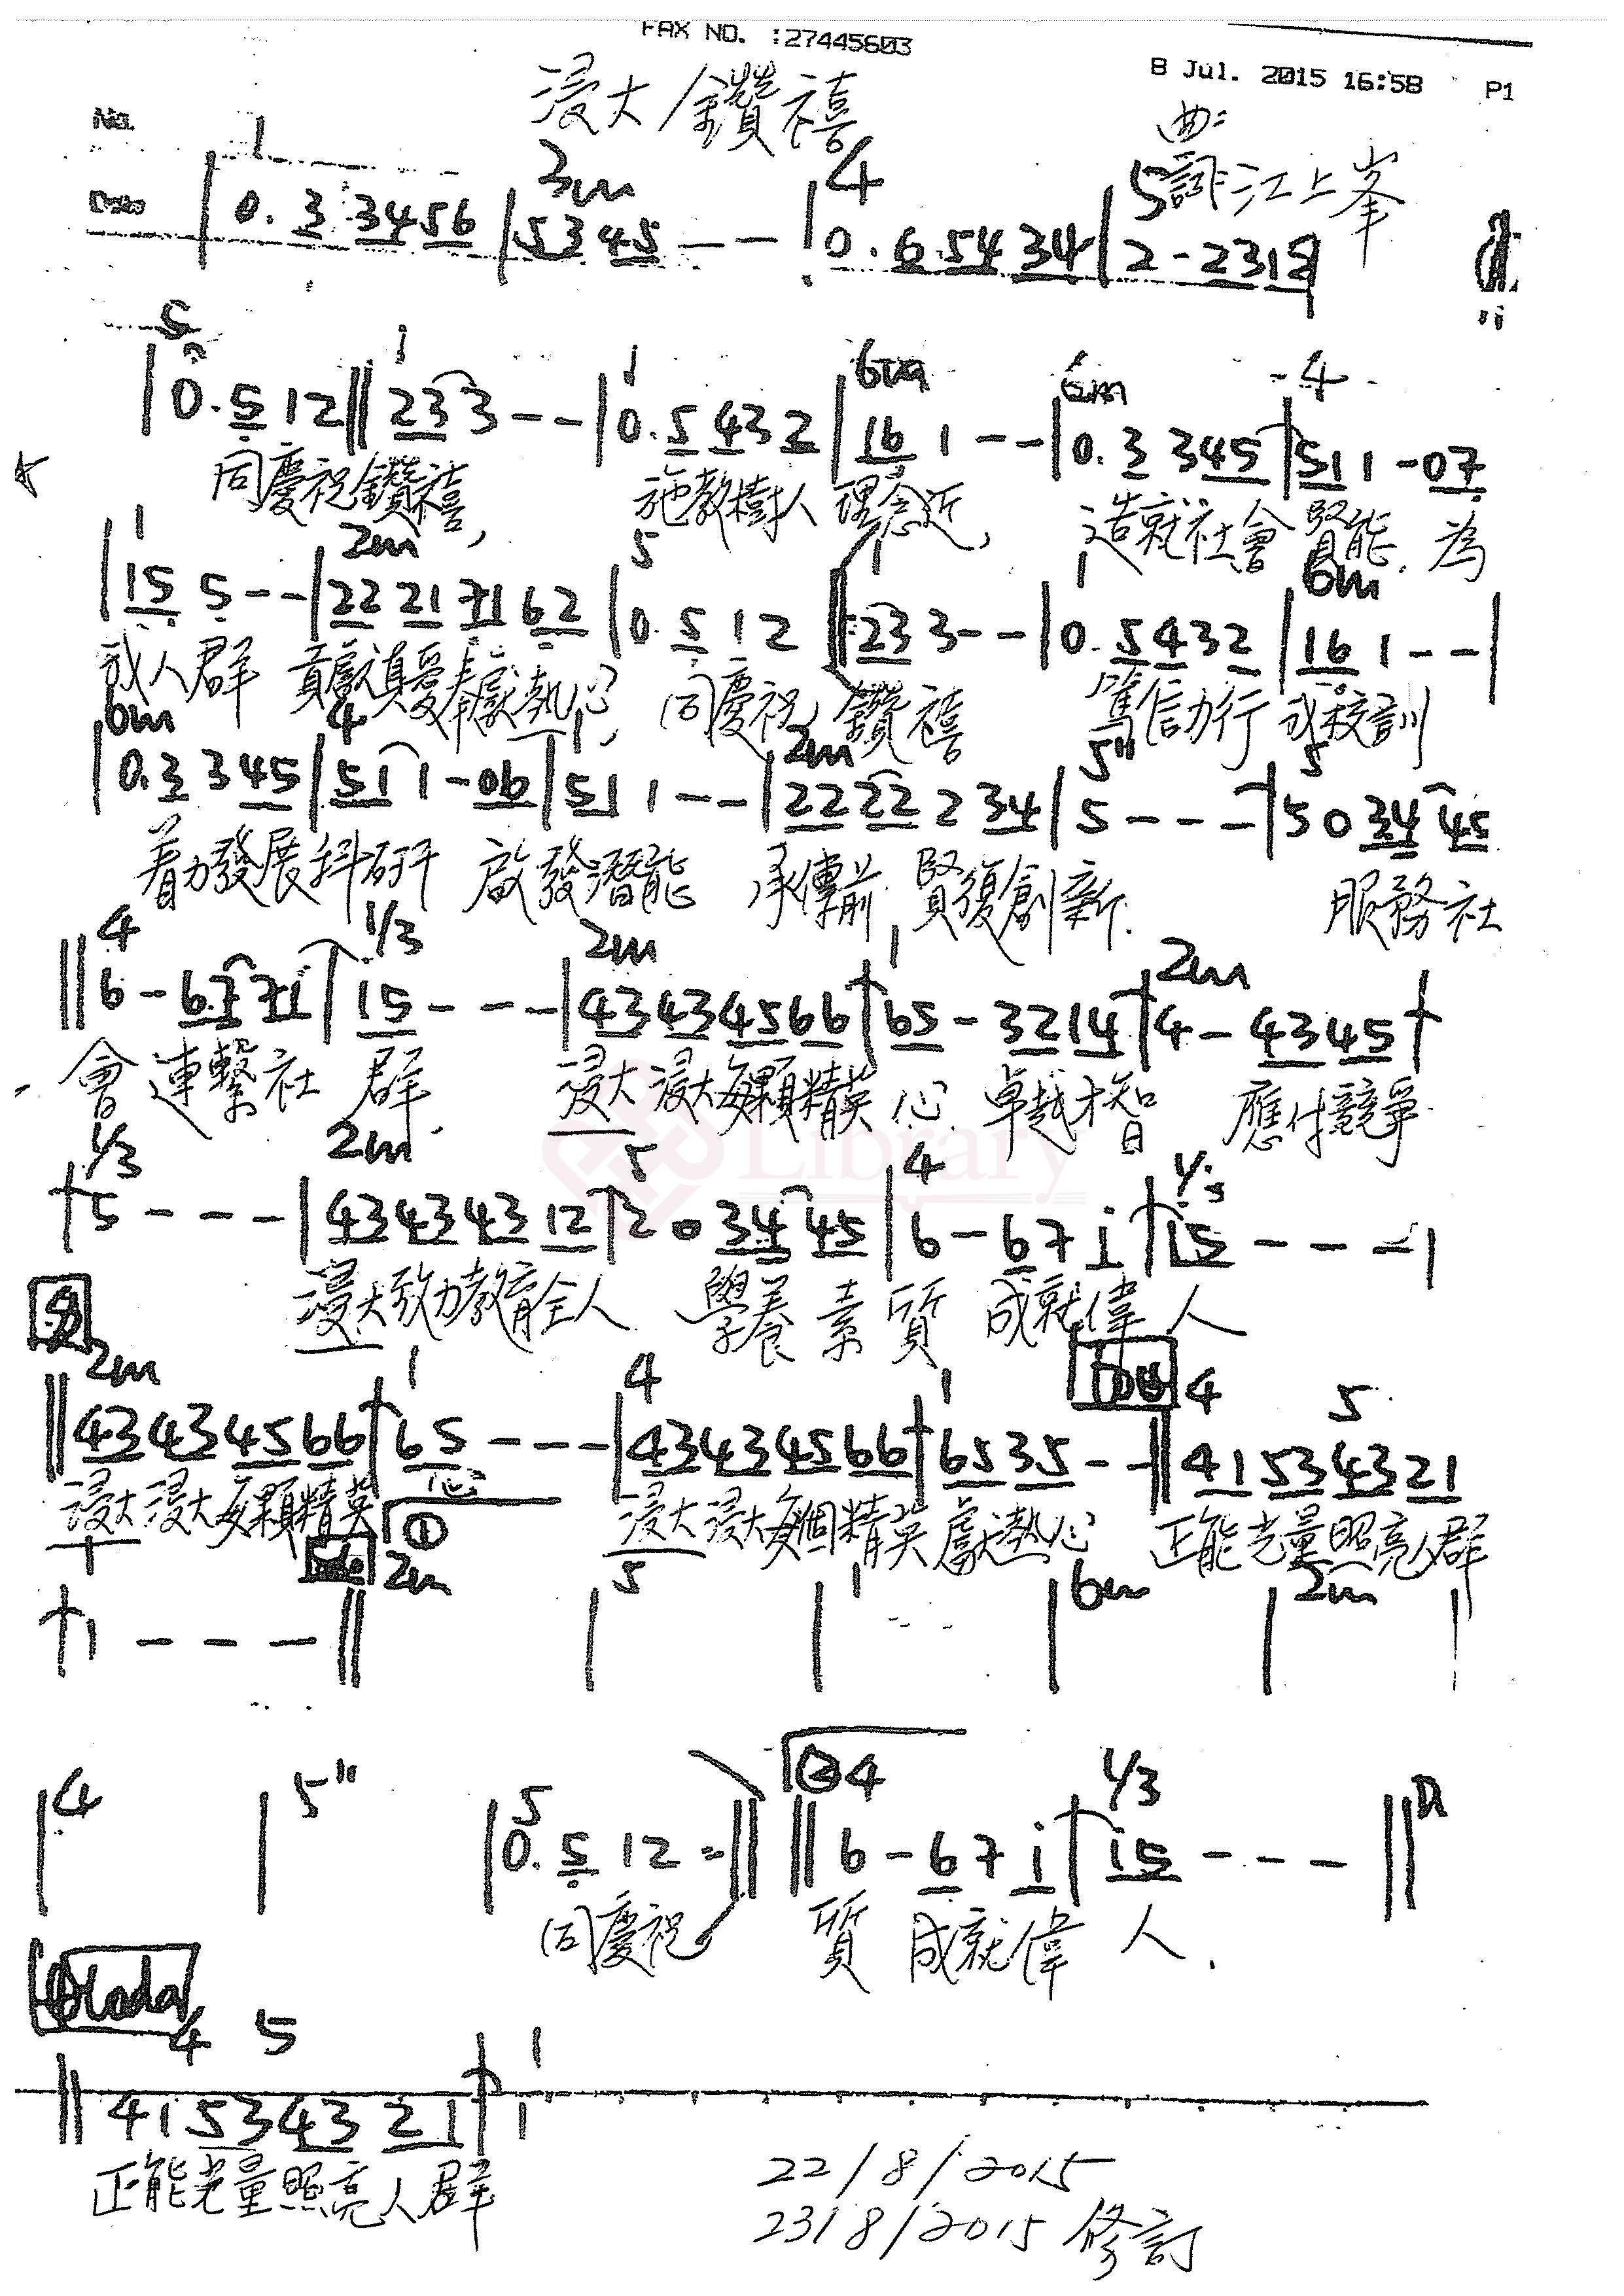 FAX NO. :27445603
8 Jul. 2015 16:58 P1
浸大鑽禧
曲:
詞:江上峯
No.
Date
1 3m 4 5
| 0. 3 3456 | 5345 - - | 0. 6 54 34 | 2 - 2312 |
5 1 1 6m 6m 4
| 0. 5 12 || 233 - - | 0. 5 43 2 | 16 1 - - | 0. 3 345 | 511 - 07
同慶祝鑽禧, 施教樹人理念近, 造就社會賢能. 為
1 2m 5 1 1 6m
| 15 5 - - | 22 21 71 62 | 0. 5 12 || 233 - - | 0. 5432 | 16 1 - - |
我人群 貢獻真愛奉獻熱心, 同慶祝鑽禧 篤信力行我校訓
6m 4 1 2m 5" 5
| 0. 3 345 | 51 1 - 06 | 511 - - | 2222 2 34 | 5 - - - | 5 0 34 45
着力發展科研 啟發潛能 承傳前賢復創新. 服務社
4 1/3 2m 1 2m
|| 6 - 67 71 | 15 - - - | 43434566 | 65 - 3214 | 4 - 4345 |
會連繫社群. 浸大浸大每顆精英心 卓越才智 應付競爭
Library
1/3 2m 5 4 1/3
| 5 - - - | 434343 12 | 2 0 34 45 | 6 - 67 i | i5 - - - |
浸大致力教育全人 學養素質 成就偉人
2m 1 4 1 4 5
|| 43434566 | 65 - - - | 43434566 | 6535 - - || 41 53 43 21
浸大浸大每顆精英心 浸大浸大每個精英獻熱心 正能光量照亮人群
1 ① 2m 5 1 6m 2m
| 1 - - - ||
4 5" 5 4 1/3
| 0. 5 12 :|| || 6 - 67 i | i5 - - - ||
同慶祝 質 成就偉人.
4 5 1
|| 41 53 43 21 | 1
正能光量照亮人群
22/8/2015
23/8/2015 修訂